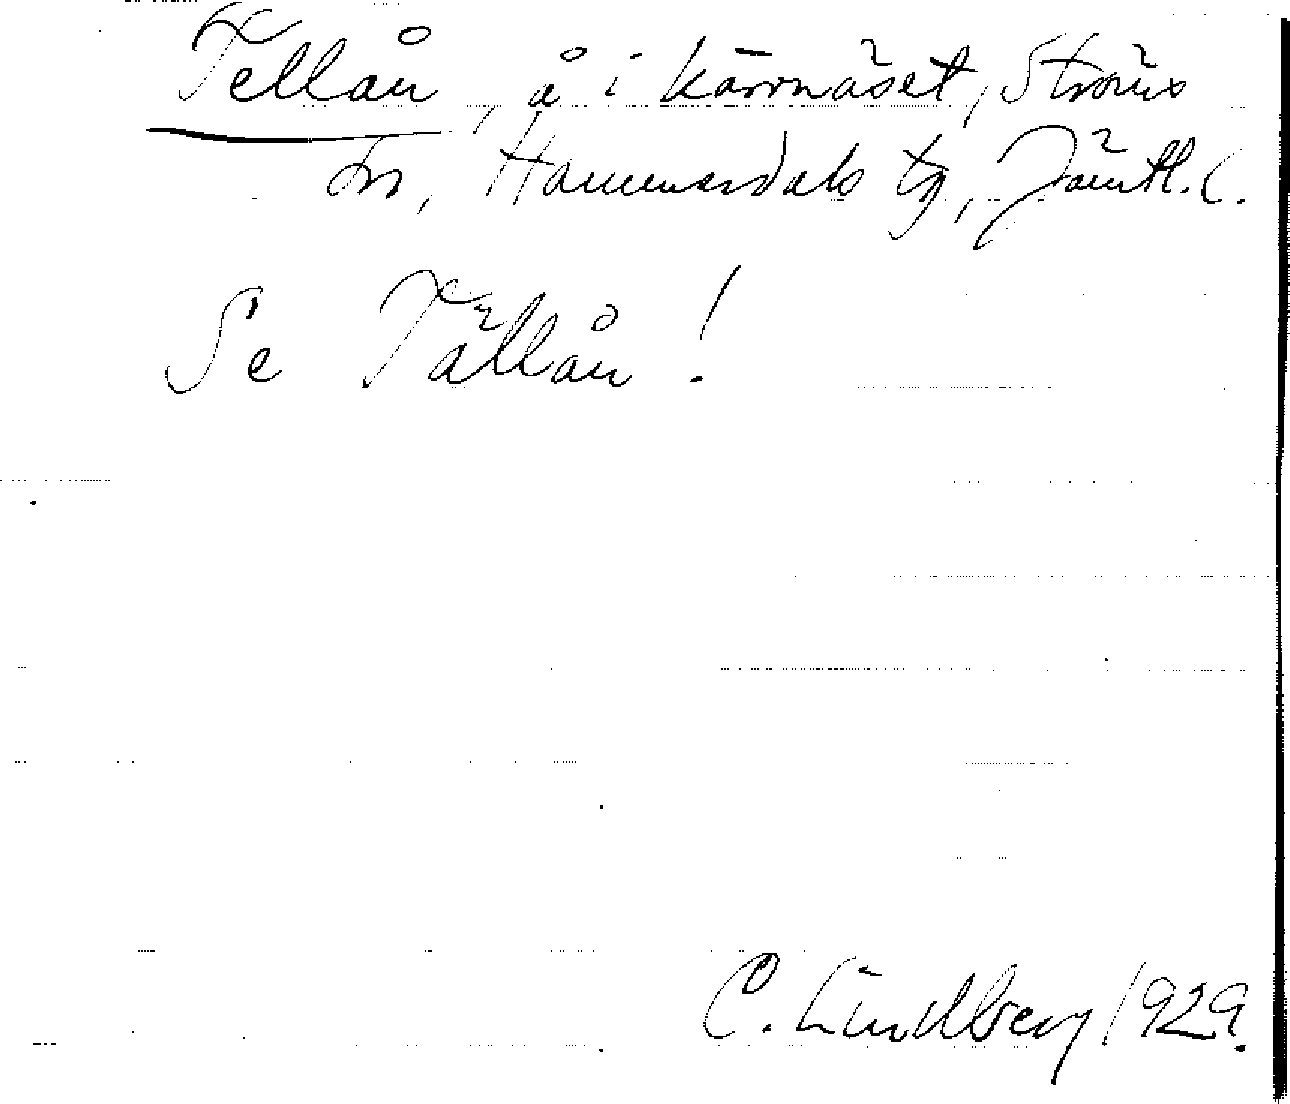 Tellån, å i Kärrnäset, Ströms
sn, Hammerdals tg, Jämtl. l.
Se Tällån!
C. Lindberg 1929.